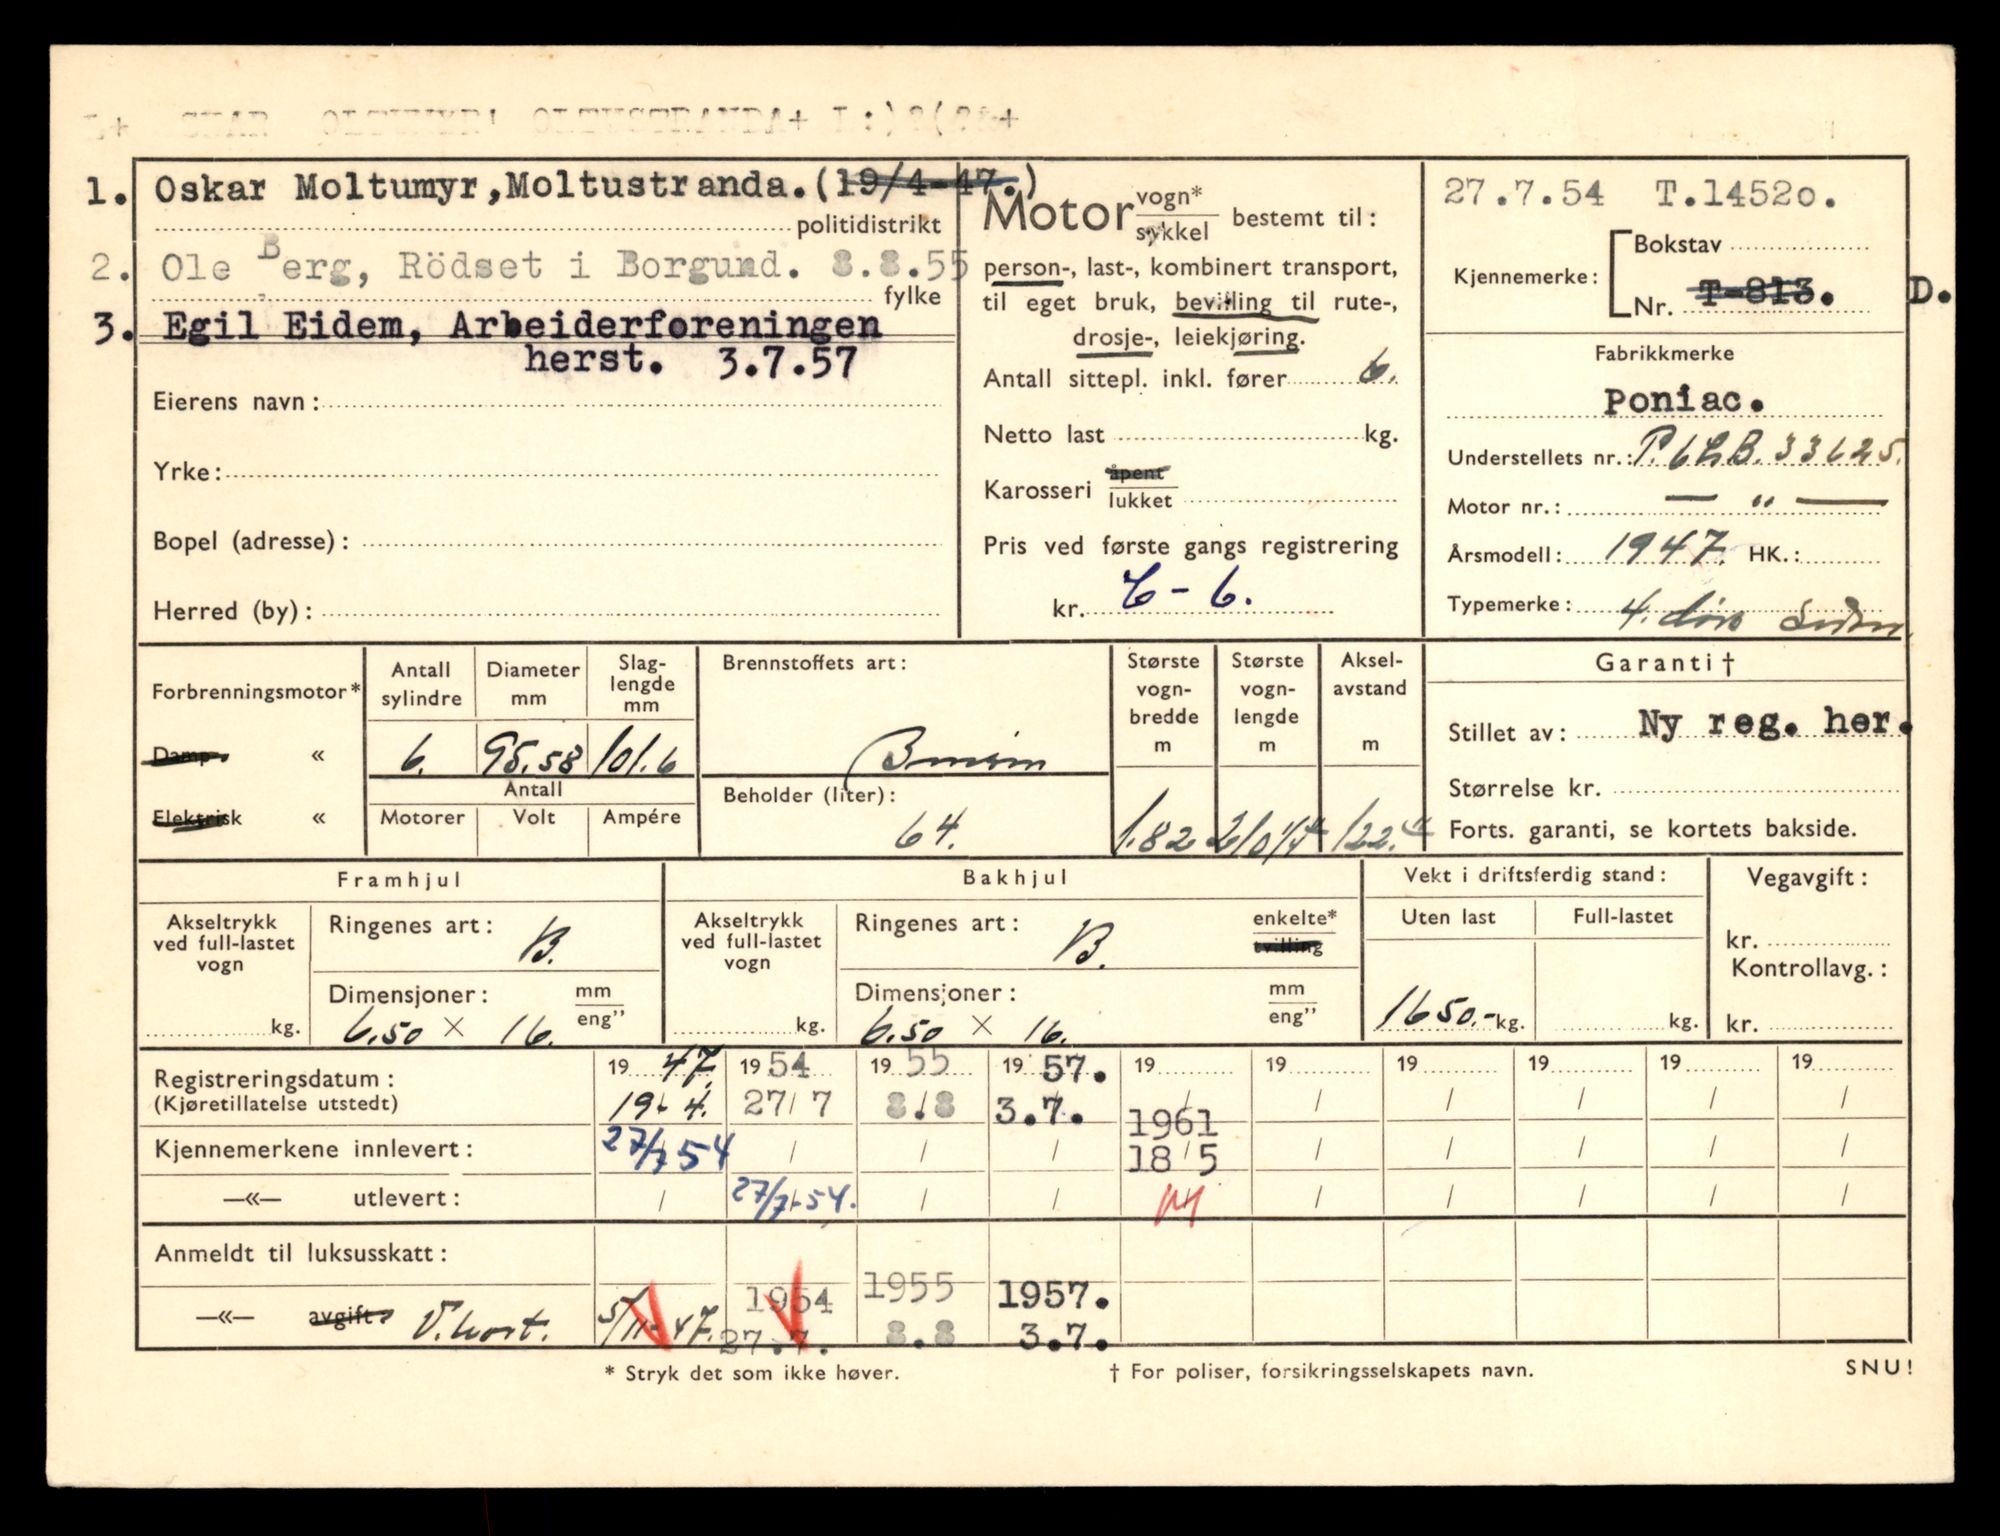 1. Oskar Moltumyr,Moltustranda.(19/4-47.)
politidistrikt
2. Ole Berg, Rödset i Borgund. 8.8.55
fylke
3. Egil Eidem, Arbeiderforeningen
herst. 3.7.57
Eierens navn:
Yrke:
Bopel (adresse):
Herred (by):
Motor vogn* sykkel bestemt til:
person-, last-, kombinert transport,
til eget bruk, bevilling til rute-,
drosje-, leiekjøring.
Antall sittepl. inkl. fører 6.
Netto last kg.
Karosseri åpent lukket
Pris ved første gangs registrering
kr. 6 - 6.
27.7.54 T.1452o.
Bokstav
Kjennemerke:
Nr. T-813. D.
Fabrikkmerke
Poniac.
Understellets nr.: P.6LB.33625.
Motor nr.: — " —
Årsmodell: 1947. HK.:
Typemerke: 4. dørs
Forbrenningsmotor*
Damp- «
Elektrisk «
Antall sylindre
Diameter mm
Slag-lengde mm
6. 95.58 101.6
Antall
Motorer Volt Ampére
Brennstoffets art:
Bensin
Beholder (liter):
64.
Største vogn-bredde m
Største vogn-lengde m
Aksel-avstand m
1.82 210 1/4 122."
Garanti†
Stillet av: Ny reg. her.
Størrelse kr.
Forts. garanti, se kortets bakside.
Framhjul
Akseltrykk ved full-lastet vogn
kg.
Ringenes art: B.
Dimensjoner: mm eng"
6.50 × 16.
Bakhjul
Akseltrykk ved full-lastet vogn
kg.
Ringenes art: B. enkelte* tvilling
Dimensjoner: mm eng"
6.50 × 16.
Vekt i driftsferdig stand:
Uten last Full-lastet
1650.- kg. kg.
Vegavgift:
kr.
Kontrollavg.:
kr.
Registreringsdatum: 1947. 1954 1955 1957. 19 19 19 19 19 19
(Kjøretillatelse utstedt) 19-4. 27/7 8.8 3.7. / / / / / /
1961
Kjennemerkene innlevert: 27/7 54 / / / 18/5 / / / / /
—«— utlevert: / 27/7-54. / / / / / / /
Anmeldt til luksusskatt:
1954 1955 1957.
—«— avgift: 5/11-47. 27.7. 8.8 3.7.
* Stryk det som ikke høver.
† For poliser, forsikringsselskapets navn.
SNU!